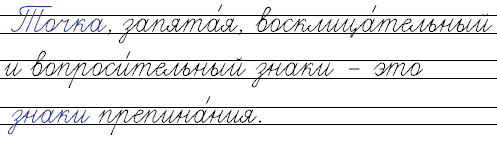 Точка, запята́я, восклица́тельный
и вопроси́тельный знаки – это
знаки препина́ния.